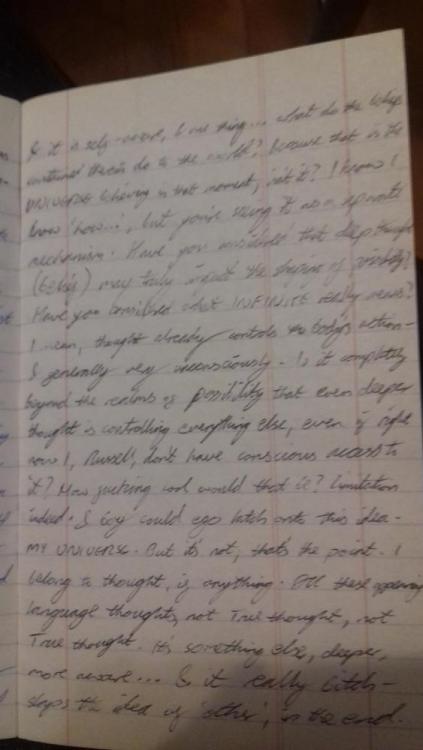 & it is self-aware, & one thing... what do the beliefs
contained therein do to the world? Because that is the
UNIVERSE believing in that moment, isn't it? I know I
know 'how...', but you're seeing it as a separate
mechanism. Have you considered that deep thought
(beliefs) may truly impact the shaping of possibility?
Have you considered what INFINITE really means?
I mean, thought already controls the body's action -
& generally very unconsciously. Is it completely
beyond the realms of possibility that even deeper
thought is controlling everything else, even if right
now I, Russell, don't have conscious access to
it? How fucking cool would that be? Limitation
indeed. & boy could ego latch onto this idea -
MY UNIVERSE. But it's not, that's the point. I
belong to thought, if anything. & all these appearing
language thoughts, not True thought, not
True thought. It's something else, deeper,
more aware... & it really bitch-
slaps the idea of 'other', in the end.